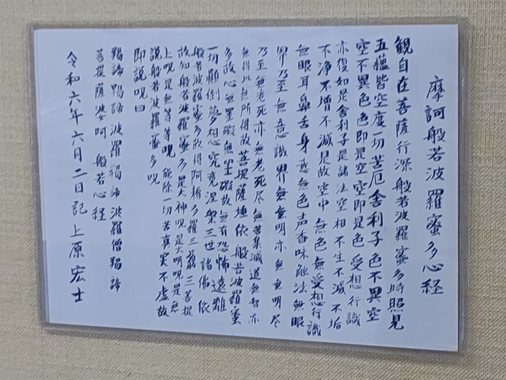 摩訶般若波羅蜜多心経
観自在菩薩行深般若波羅蜜多時照見
五蘊皆空度一切苦厄舎利子色不異空
空不異色色即是空空即是色受想行識
亦復如是舎利子是諸法空相不生不滅不垢
不浄不増不減是故空中無色無受想行識
無眼耳鼻舌身意無色声香味触法無眼
界乃至無意識界無無明亦無無明尽
乃至無老死亦無老死尽無苦集滅道無智亦
無得以無所得故菩提薩埵依般若波羅蜜
多故心無罣礙無罣礙故無有恐怖遠離
一切顛倒夢想究竟涅槃三世諸佛依
般若波羅蜜多故得阿耨多羅三藐三菩提
故知般若波羅蜜多是大神呪是大明呪是無
上呪是無等等呪能除一切苦真実不虚故
説般若波羅蜜多呪
即説呪曰
羯諦羯諦波羅羯諦波羅僧羯諦
菩提薩婆訶 般若心経
令和六年六月二日記上原宏士